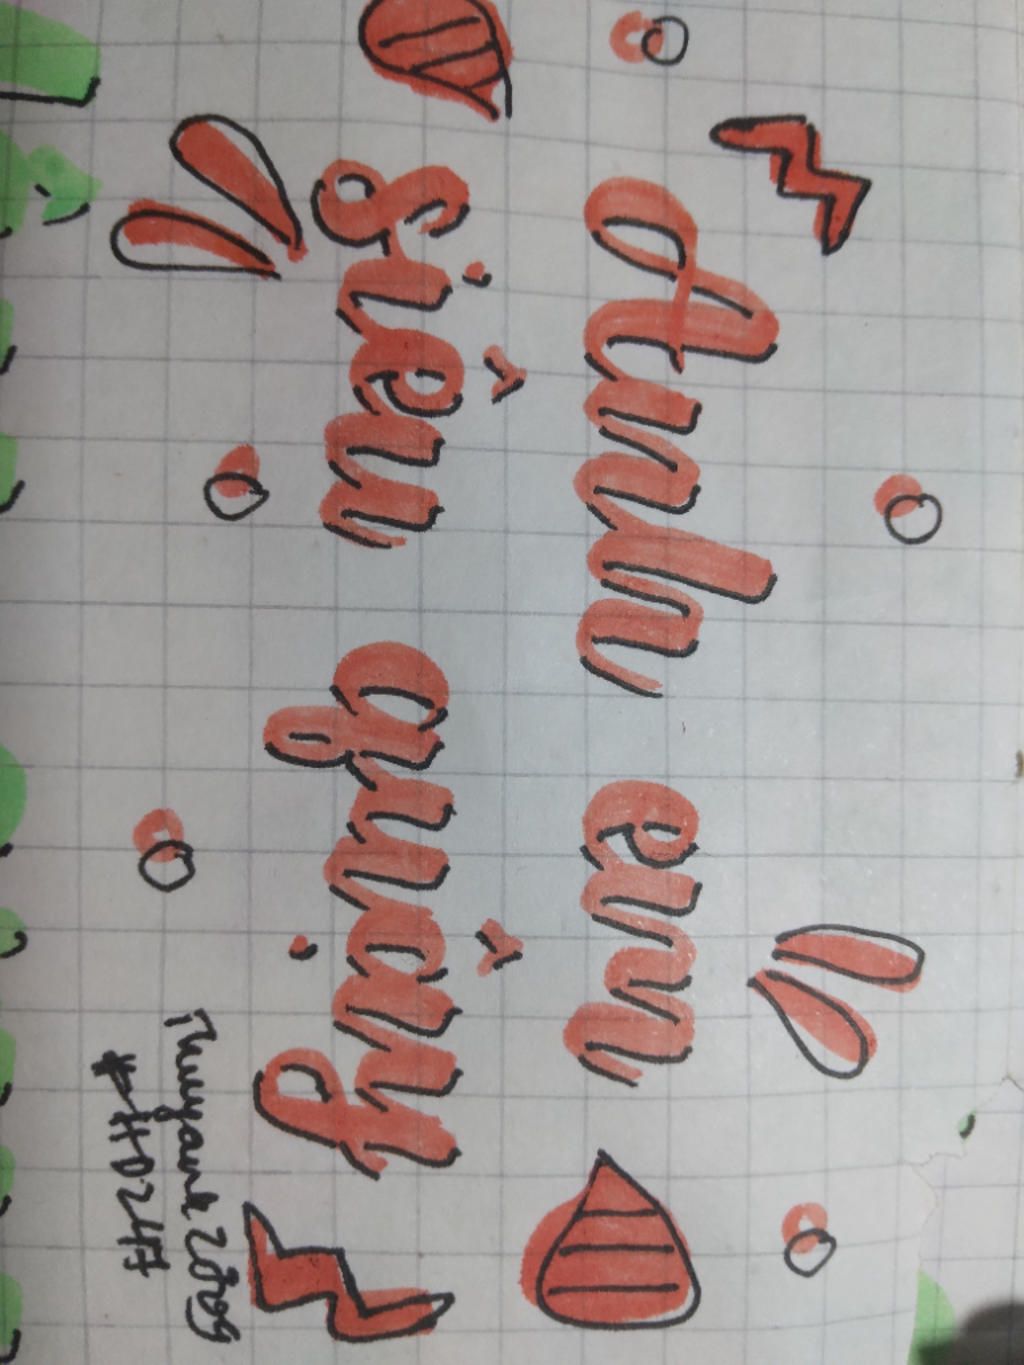 Anh em
siêu quậy
Thuyanh2609
#HD247